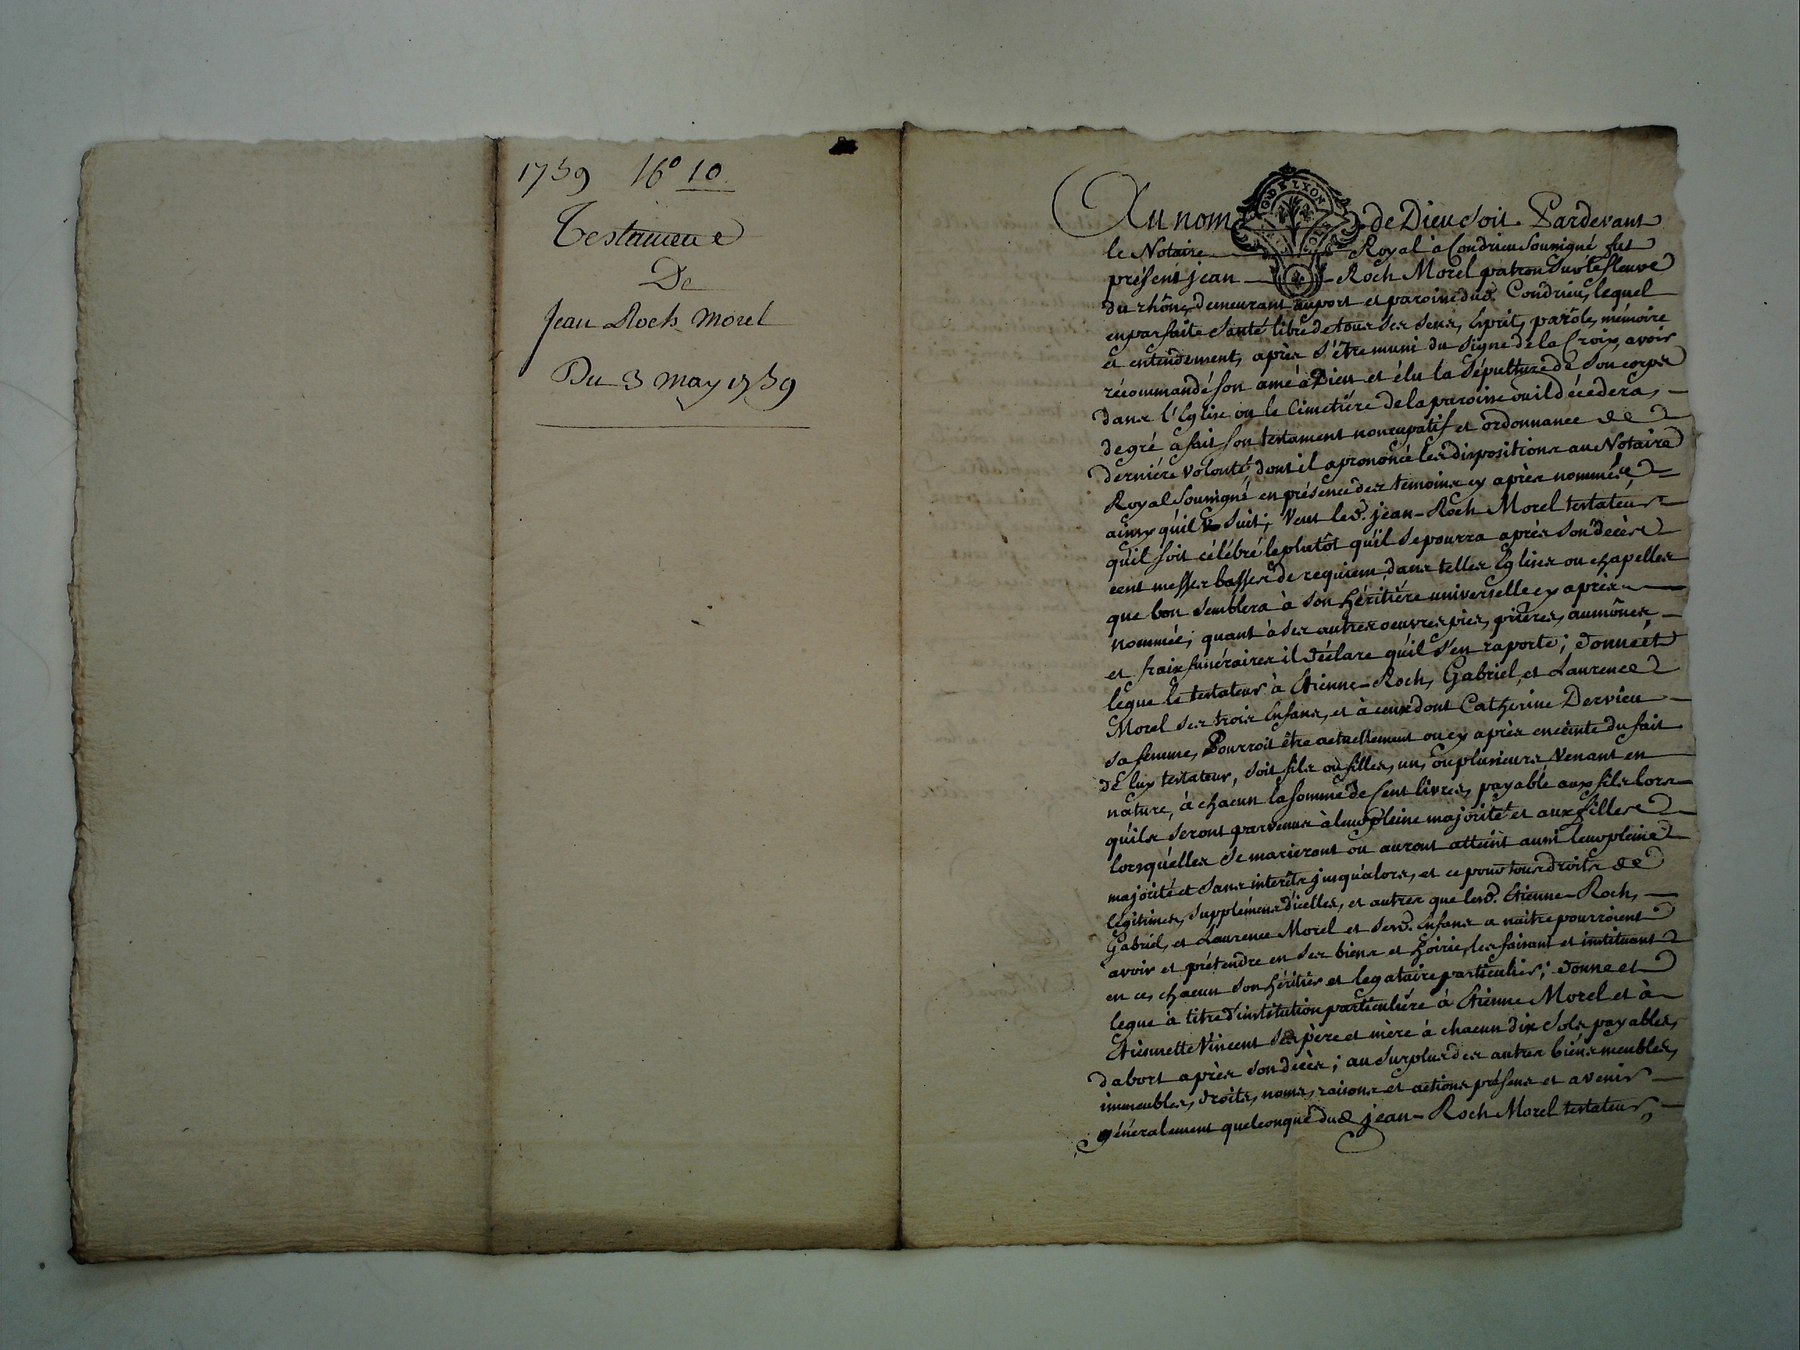 1759 N° 10
Testament
De
Jean Roch Morel
Du 3 may 1759
GN DE LYON
Au nom de Dieu soit Pardevant
le Notaire Royal à Condrieu soussigné fut
présent jean Roch Morel patron sur le fleuve
du rhône, demeurant au port et paroisse dud. Condrieu, lequel
en parfaite santé libre de tous ses sens, Esprit, parole, mémoire
et entendement, après s'être muni du signe de la Croix, avoir
récommandé son ame à Dieu et élu la sépulture de son corps
dans l'Eglise ou le Cimetiére de la paroisse ou il décédera,
de gré à fait son testament noncupatif et ordonnance de
derniére volonté, dont il a prononcé les dispositions au Notaire
Royal soussigné en présence des temoins cy après nommés,
ainsy qu'il suit; Veut led. jean-Roch Morel testateur
qu'il soit célébré leplutôt qu'il se pourra après son décès
cent messes basses de requiem, dans telles Eglises ou chapelles
que bon semblera à son héritiére universelle cy après
nommée; quant à ses autres oeuvres pies, priéres, aumônes,
et fraix funéraires il déclare qu'il s'en raporte; donne et
legue le testateur à Etienne-Roch, Gabriel, et Laurence
Morel ses trois Enfans, et à ceux dont Catherine Dervieu
sa femme, Pourroit être actuellement ou cy après enceinte du fait
de luy testateur, soit fils ou filles, un, ou plusieurs Venant en
nature, à chacun la somme de Cent livres, payable aux fils lors
qu'ils seront parvenus à leur pleine majorité et aux filles
lorsqu'elles se marieront ou auront atteint aussi leur pleine
majorité et sans interêts jusqu'alors, et ce pour tous droits de
légitimes, supplémens d'icelles, et autres que lesd. Etienne-Roch,
Gabriel, et Laurence Morel et sesd. Enfans a naitre pourroient
avoir et prétendre en ses biens et hoirie, les faisant et instituant
en ce, chacun son héritier et legataire particulier; donne et
legue à titre d'institution particuliére à Etienne Morel et à
Etiennette Vincent ses père et mère à chacun dix sols payables,
dabort après son décès; au surplus des autres biens meubles,
immeubles, droits, noms, raisons et actions présens et avenir
généralement quelconque dud. jean-Roch Morel testateur,